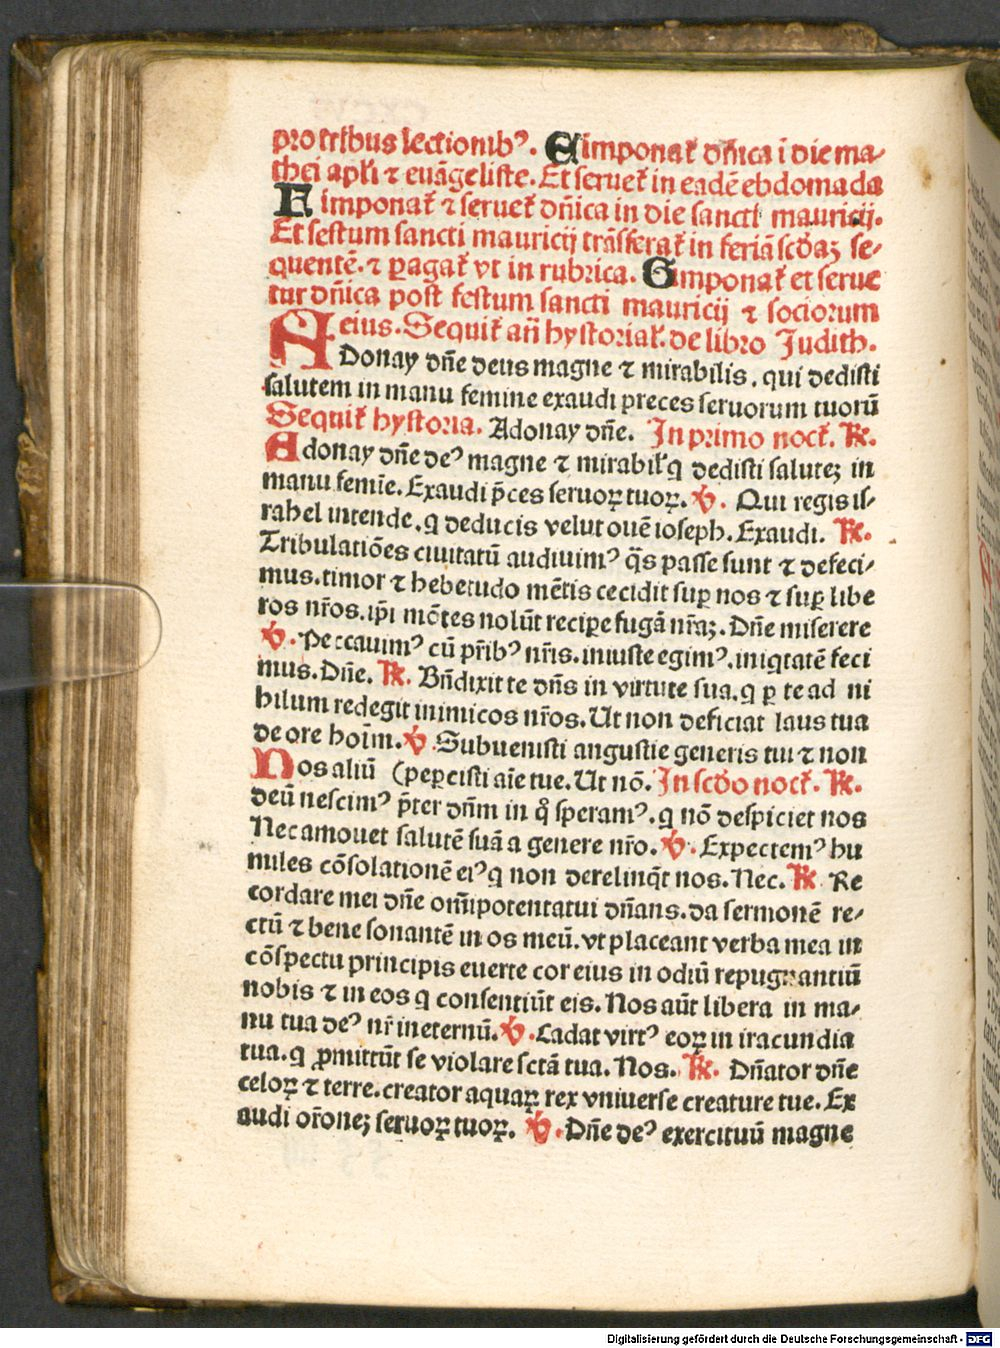 pro tribus lectionibꝰ. E imponat᷑ dn̄ica ī die ma⸗
thei apl̓i ⁊ euāgeliste. Et seruet᷑ in eadē ebdomada
F imponat᷑ ⁊ seruet᷑ dn̄ica in die sancti mauricij.
Et festum sancti mauricij trāsferat᷑ in feriā scd̓aꝫ se⸗
quentē. ⁊ ꝑagat᷑ vt in rubrica. G imponat᷑ et serue
tur dn̄ica post festum sancti mauricij ⁊ sociorum
eius. Sequit᷑ an̄ hystoriaꝉ. de libro Judith.
ADonay dn̄e deus magne ⁊ mirabilis, qui dedisti
salutem in manu femine exaudi preces seruorum tuorū
Sequit᷑ hystoria. Adonay dn̄e. In primo noct᷑. ℟.
Adonay dn̄e deꝰ magne ⁊ mirabil̓ q dedisti saluteꝫ in
manu femīe. Exaudi p̄ces seruoꝝ tuoꝝ. ℣. Qui regis is⸗
rahel intende, q deducis velut ouē ioseph. Exaudi. ℟.
Tribulatiōes ciuitatū audiuimꝰ q̄s passe sunt ⁊ defeci⸗
mus. timor ⁊ hebetudo mētis cecidit suꝑ nos ⁊ suꝑ libe
ros nr̄os. ip̄i mōtes nolūt reciꝑe fugā nr̄aꝫ. Dn̄e miserere
℣. Peccauimꝰ cū pr̄ibꝰ nr̄is. iniuste egimꝰ. iniqtatē feci
mus. Dn̄e. ℟. Bn̄dixit te dn̄s in virtute sua. q ꝑ te ad ni
hilum redegit inimicos nr̄os. Ut non deficiat laus tua
de ore hoīm. ℣. Subuenisti angustie generis tui ⁊ non
Nos aliū (peꝑcisti aīe tue. Ut nō. In scd̓o noct᷑. ℟.
deū nescimꝰ p̄ter dn̄m in q̊ speramꝰ. q nō despiciet nos
Nec amouet salutē suā a genere nr̄o. ℣. Expectemꝰ hu
miles cōsolationē eiꝰ q non derelinq̄t nos. Nec. ℟. Re
cordare mei dn̄e om̄ipotentatui dn̄ans. da sermonē re⸗
ctū ⁊ bene sonantē in os meū. vt placeant verba mea in
cōspectu principis euerte cor eius in odiū repugnantiū
nobis ⁊ in eos q consentiūt eis. Nos aūt libera in ma⸗
nu tua deꝰ nr̄ ineternū. ℣. Cadat virtꝰ eoꝝ in iracundia
tua. q ꝓmittūt se violare sctā tua. Nos. ℟. Dn̄ator dn̄e
celoꝝ ⁊ terre. creator aquaꝝ rex vniuerse creature tue. Ex
audi or̄oneꝫ seruoꝝ tuoꝝ. ℣. Dn̄e deꝰ exercituū magne
Digitalisierung gefördert durch die Deutsche Forschungsgemeinschaft - DFG